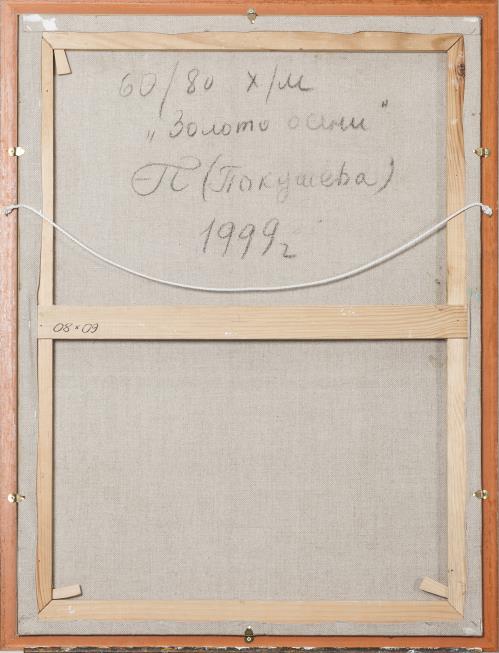 60/80 х/м
„Золото осени"
П (Покушева)
1999г
80×60